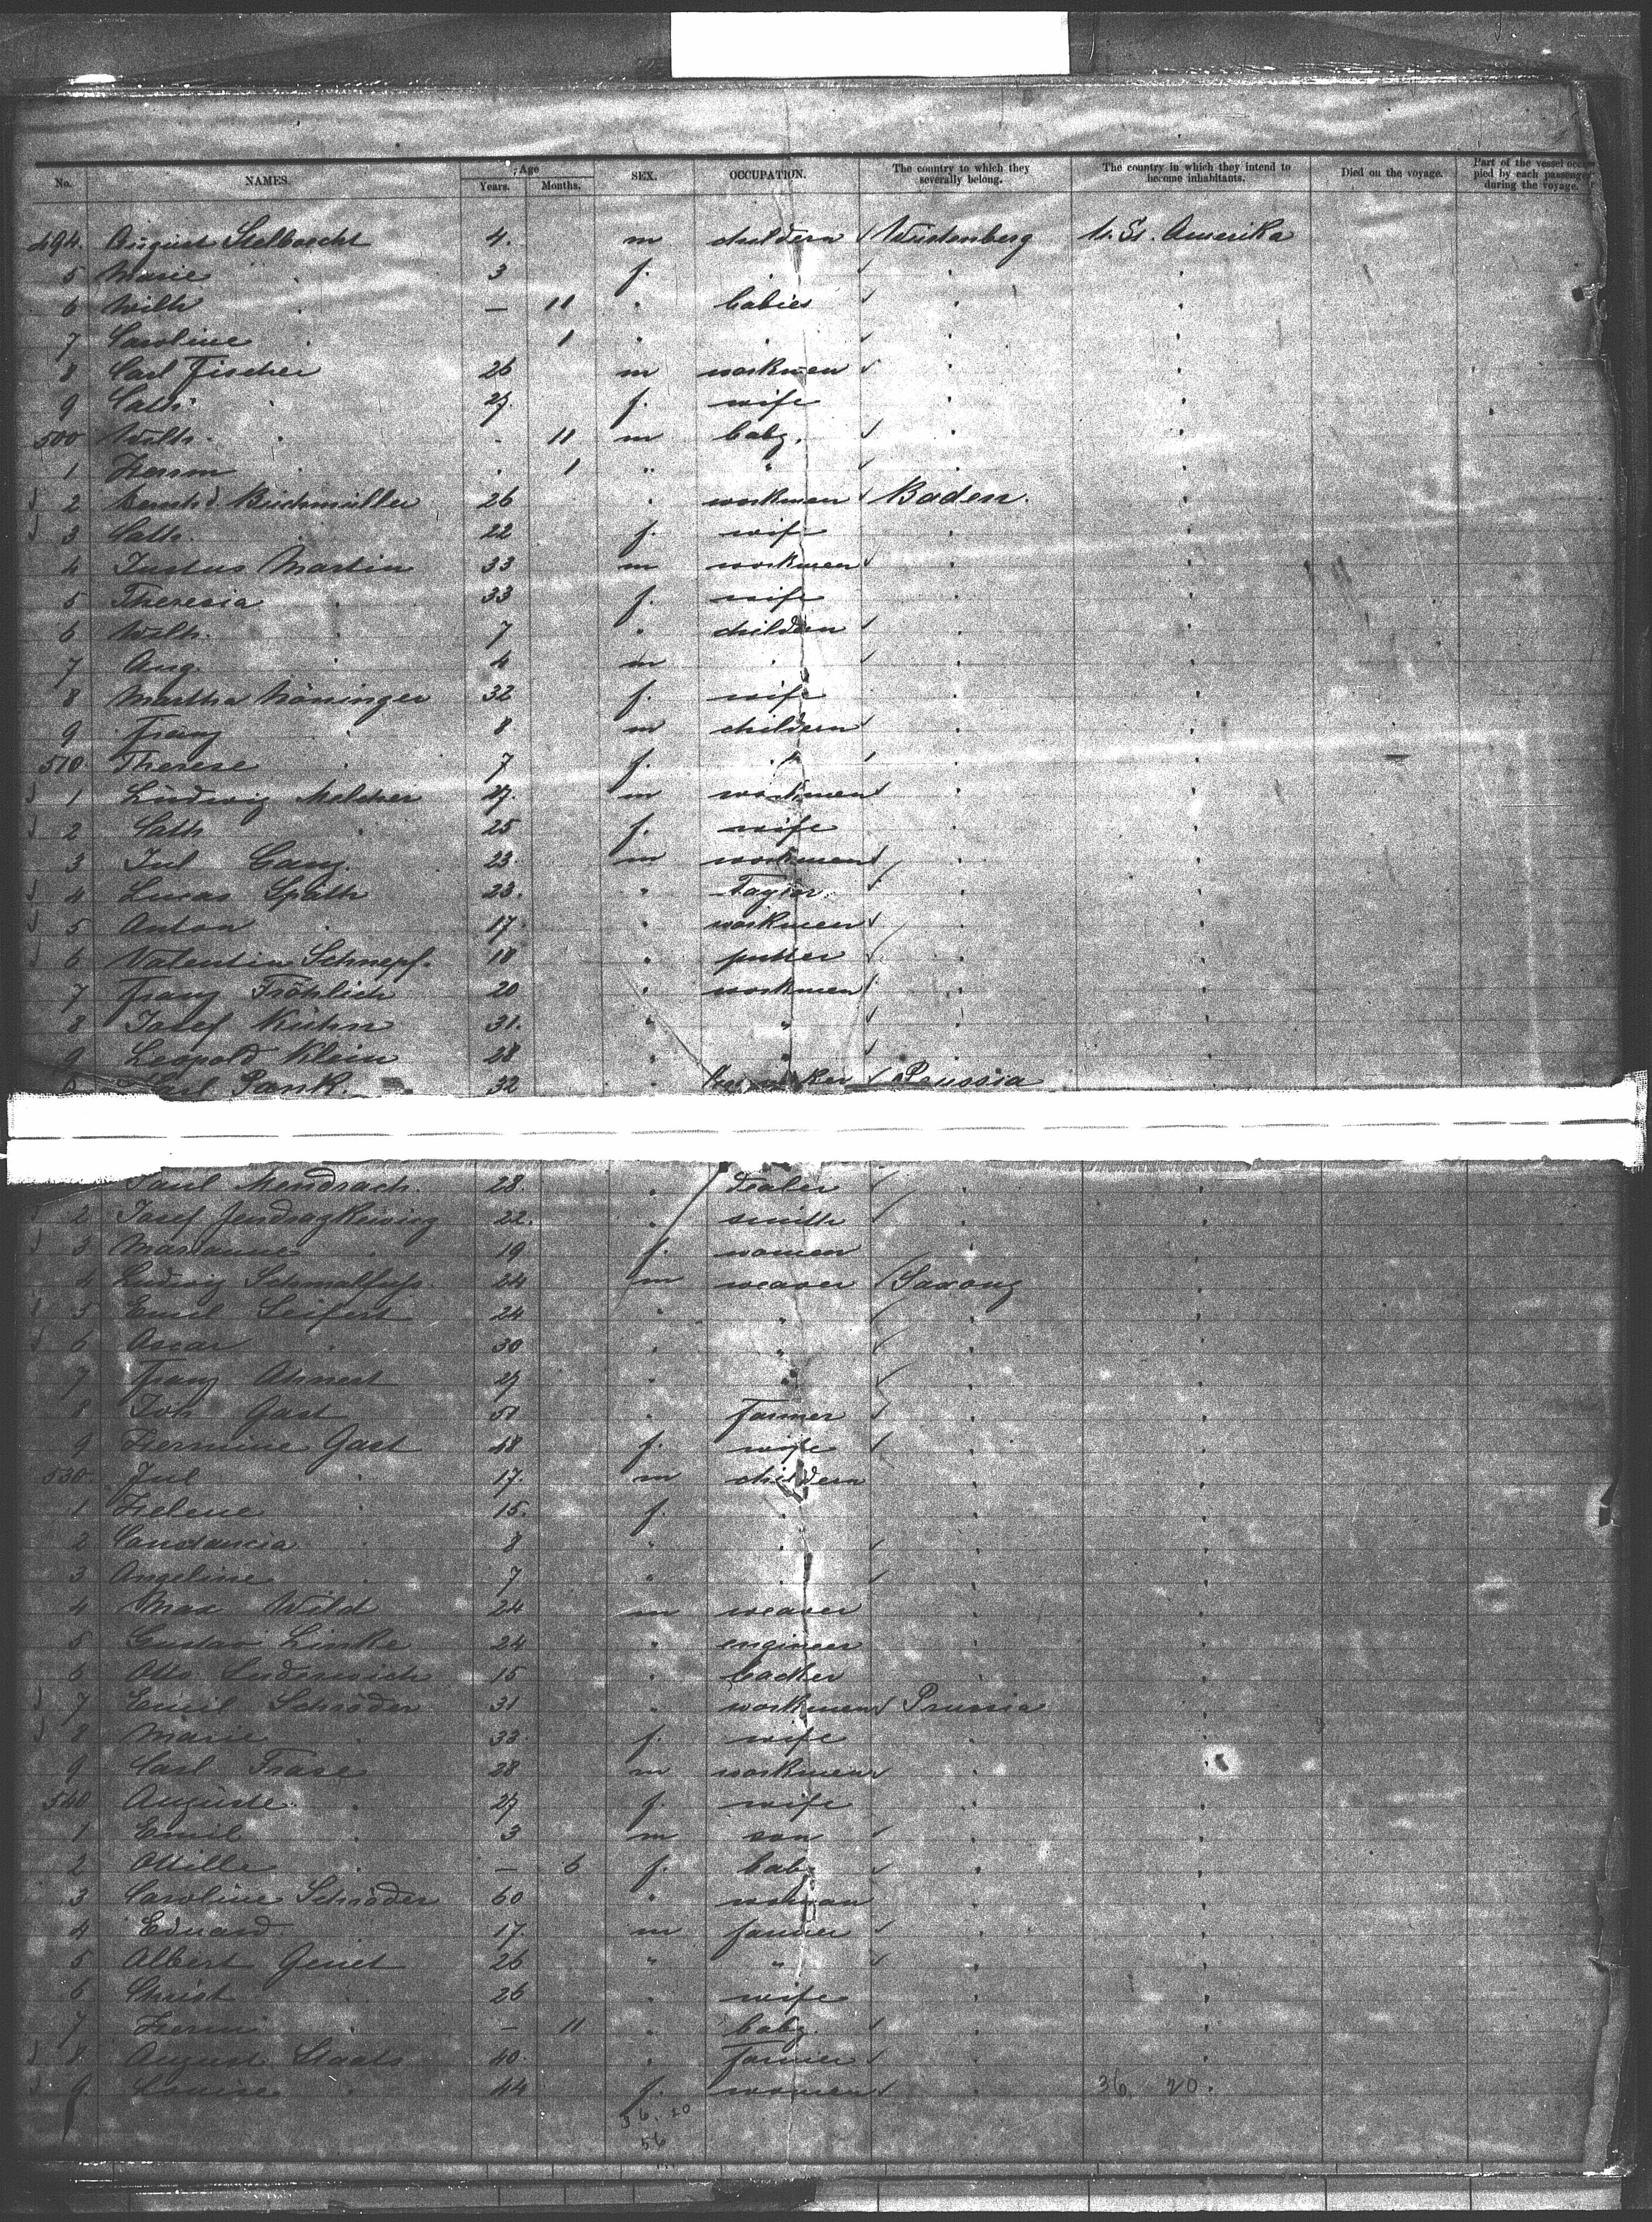 No. NAMES. Age Years. Months. SEX. OCCUPATION. The country to which they severally belong. The country in which they intend to become inhabitants. Died on the voyage. Part of the vessel occupied by each passenger during the voyage.
494. August 4. m childern Würtenberg U. St. Amerika
5 Marie " 3 f. "
6 Wilh " — 11 " babies
7 Caroline " 1 " "
8 Carl Fischer 26 m workmen
9 Cath. " 27. f. wife
500 Wilh. " 11 m baby.
1 Herm " 1 " "
2 Bernhd. Buchmüller 26 " workmen Baden.
3 Cath. " 22 f. wife
4 Justus Martin 33 m workmen
5 Theresia " 33 f. wife
6 Wilh. " 7 " children
7 Aug. " 4 m "
8 Martha Nöninger 32 f. wife
9 Franz " 8 m childern
510. Therese " 7 f. "
1 Ludwig Melcher 27. m workmen
2 Cath " 25 f. wife
3 Jul Ganz. 23. m workmen
4 Lucas Späth 23. " Taylor.
5 Anton " 17. " workmen
6 Valentin Schnepf. 18 "
7 Franz Fröhlich 20 " workmen
8 Josef Kühn 31. " "
9 Leopold Klein 28 " "
Carl Pank. 32 " Prussia
Paul Mendrach. 28. " dealer
2 Josef 22. " smith
3 Marianne " 19 f. women
4 Ludwig Schmalfuss. 24 m weaver Saxony
5 Emil Seifert 24 " "
6 Oscar " 30 " "
7 Franz Ahnert 27 " "
8 Joh Gast 51 " Farmer
9 Hermine Gast 48 f. wife
530. Jul " 17. m childern
1 Helene " 15. f. "
2 Constancia " 8 " "
3 Angeline " 7 " "
4 Max Wild 24 m weaver
5 Gustav Linke 24 " engineer
6 Otto 15 " backer
7 Emil Schröder 31 " workmen Prussia
8 Marie " 33. f. wife
9 Carl Frase 28 m workmen
540 Auguste " 27 f. wife
1 Emil " 3 m son
2 Ottilie " — 6 f. baby
3 Caroline Schröder 60 " woman
4 Eduard " 17. m farmer
5 Albert Genet 26 " "
6 Christ " 26 " wife
7 Herm " — 11 " baby.
8 August Staats 40. " Farmer
9 Louise " 44 f. women
36. 20.
36. 20
56